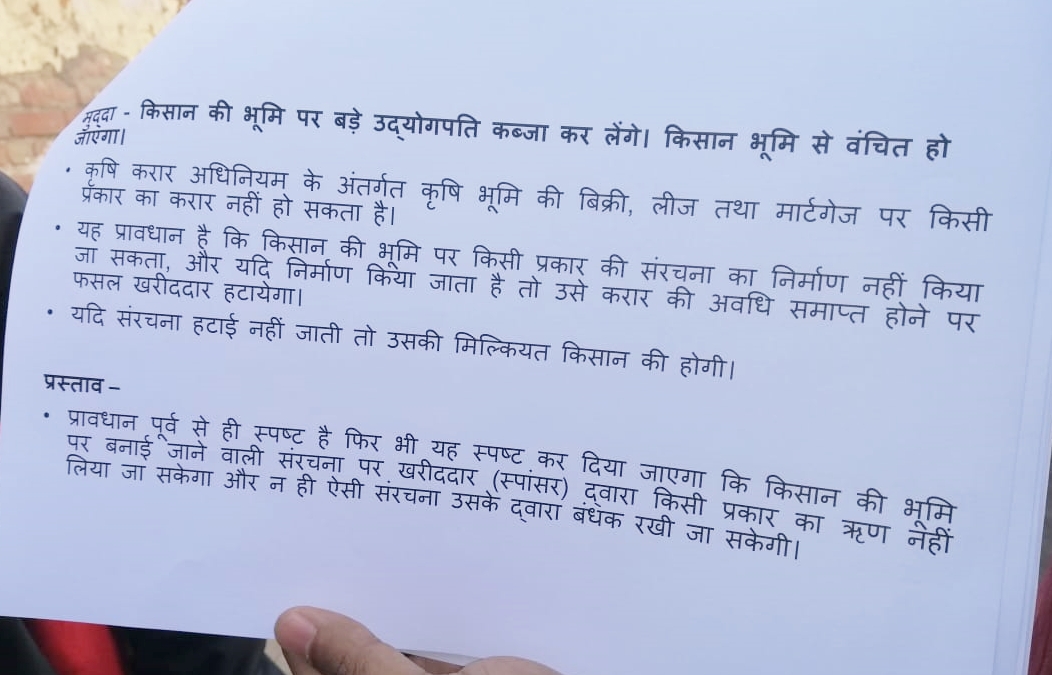 मुद्दा - किसान की भूमि पर बड़े उद्योगपति कब्जा कर लेंगे। किसान भूमि से वंचित हो
जाएगा।
• कृषि करार अधिनियम के अंतर्गत कृषि भूमि की बिक्री, लीज तथा मार्टगेज पर किसी
प्रकार का करार नहीं हो सकता है।
• यह प्रावधान है कि किसान की भूमि पर किसी प्रकार की संरचना का निर्माण नहीं किया
जा सकता, और यदि निर्माण किया जाता है तो उसे करार की अवधि समाप्त होने पर
फसल खरीददार हटायेगा।
• यदि संरचना हटाई नहीं जाती तो उसकी मिल्कियत किसान की होगी।
प्रस्ताव –
• प्रावधान पूर्व से ही स्पष्ट है फिर भी यह स्पष्ट कर दिया जाएगा कि किसान की भूमि
पर बनाई जाने वाली संरचना पर खरीददार (स्पांसर) द्वारा किसी प्रकार का ऋण नहीं
लिया जा सकेगा और न ही ऐसी संरचना उसके द्वारा बंधक रखी जा सकेगी।